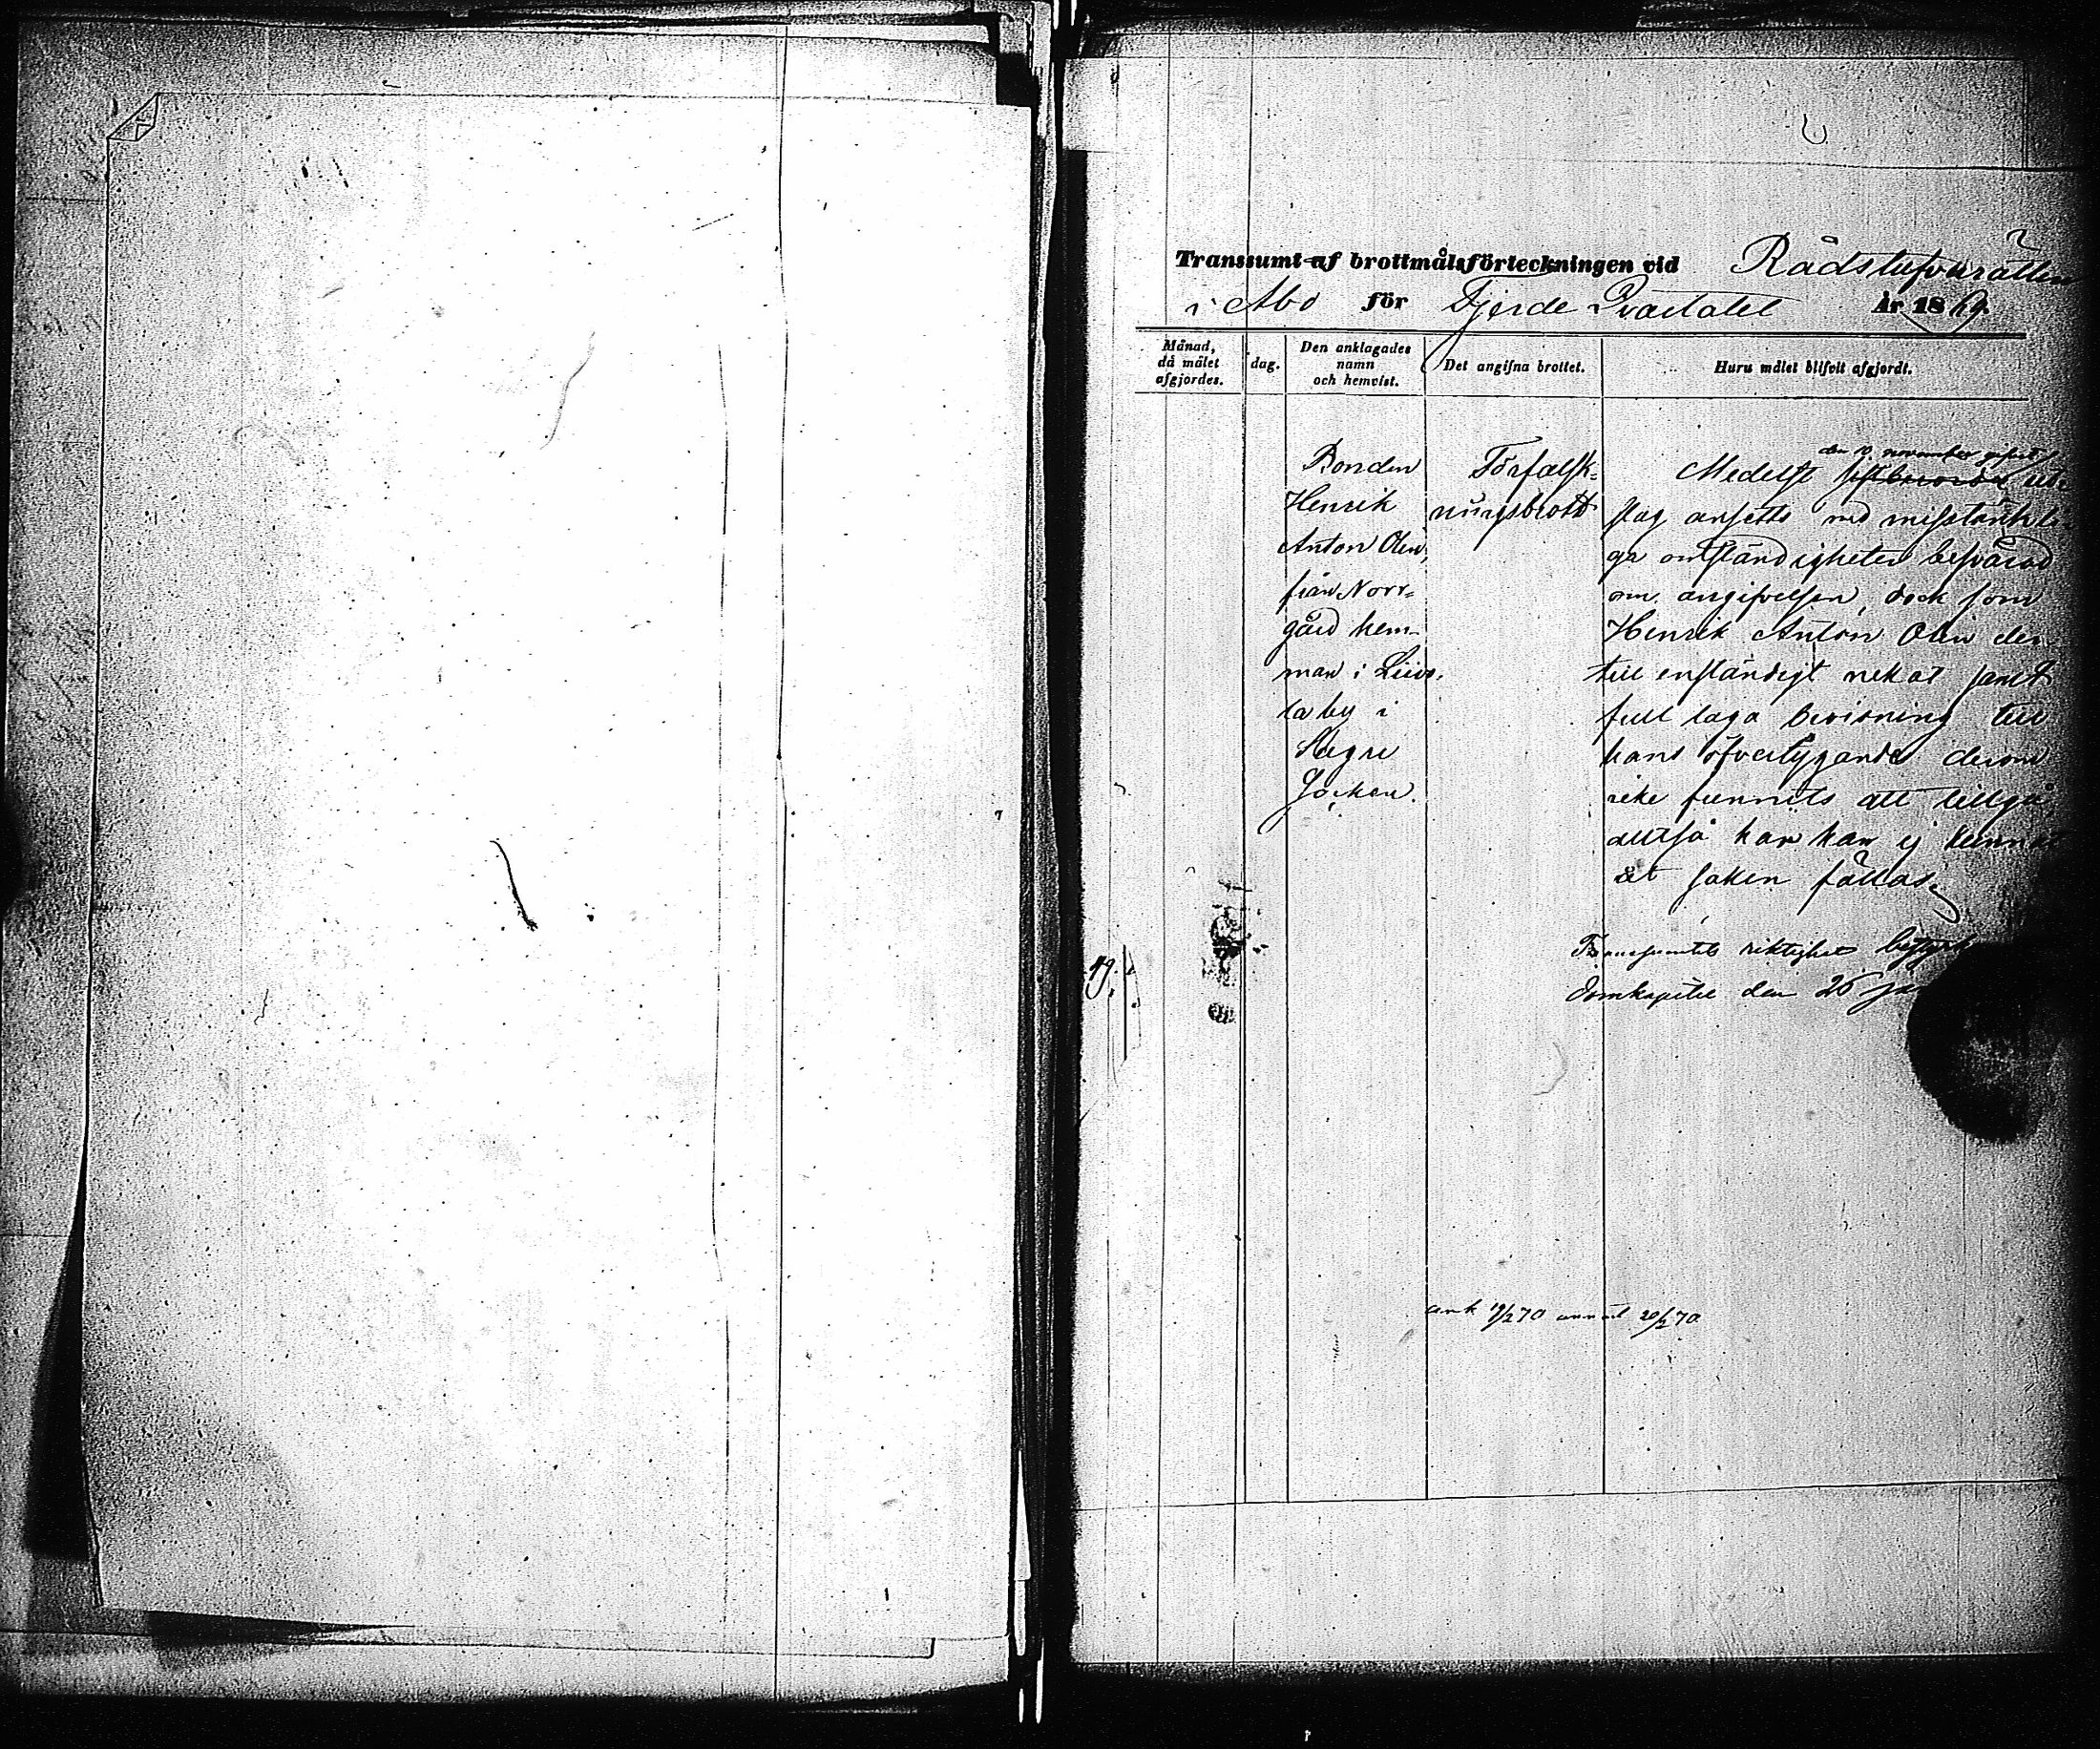 Transsumt af brottmålsförteckningen vid Rådstufvurätten
i Åbo för Fjerde Qvartalet År 1869.
Månad, då målet afgjordes.
dag.
Den anklagades namn och hemvist.
Det angifna brottet.
Huru målet blifvit afgjordt.
Bonden
Henrik
Anton Olin,
från Norr-
gård hem-
man i
la by i
Sagu
Socken.
Förfalsk-
ningsbrott
den 10 november
Medelst ut-
slag ansetts med misstänkli-
ga omständigheter besvärad
om angifvelsen, dock som
Henrik Anton Olin der-
till enständigt nekat samt
full laga bevisning till
hans öfvertygande derom
icke funnits att tillgå
alltså har han ej kunnat
åt saken fällas.
Transsumtets riktighet
Domkapitel den 26
49.
ank 19/2 70 20/2 70